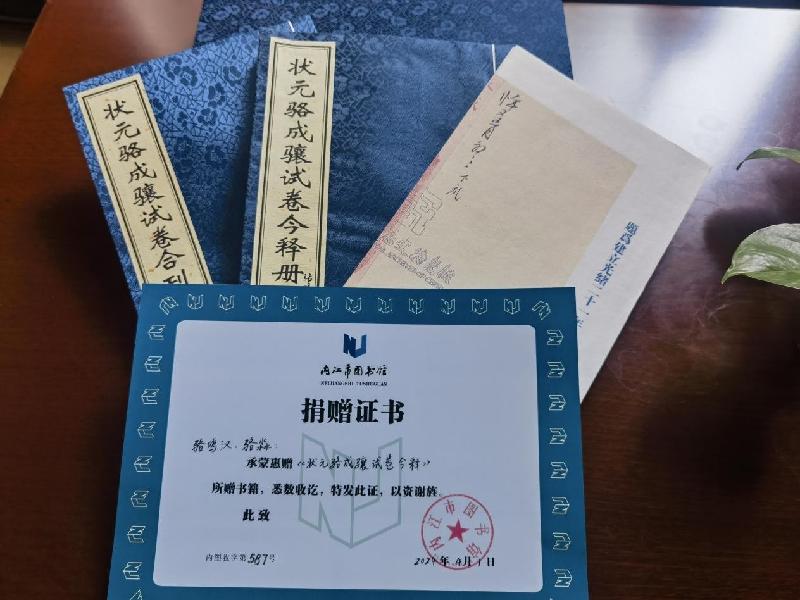 状元骆成骧试卷合刊
状元骆成骧试卷今释册
题为建立光绪二十一年
内江市图书馆
NEIJIANGSHI TUSHUGUAN
捐赠证书
骆鸣汉、骆森:
承蒙惠赠《状元骆成骧试卷今释》
所赠书籍,悉数收讫,特发此证,以资谢旌。
此致
内图收字第587号
内江市图书馆
2024年 月1日